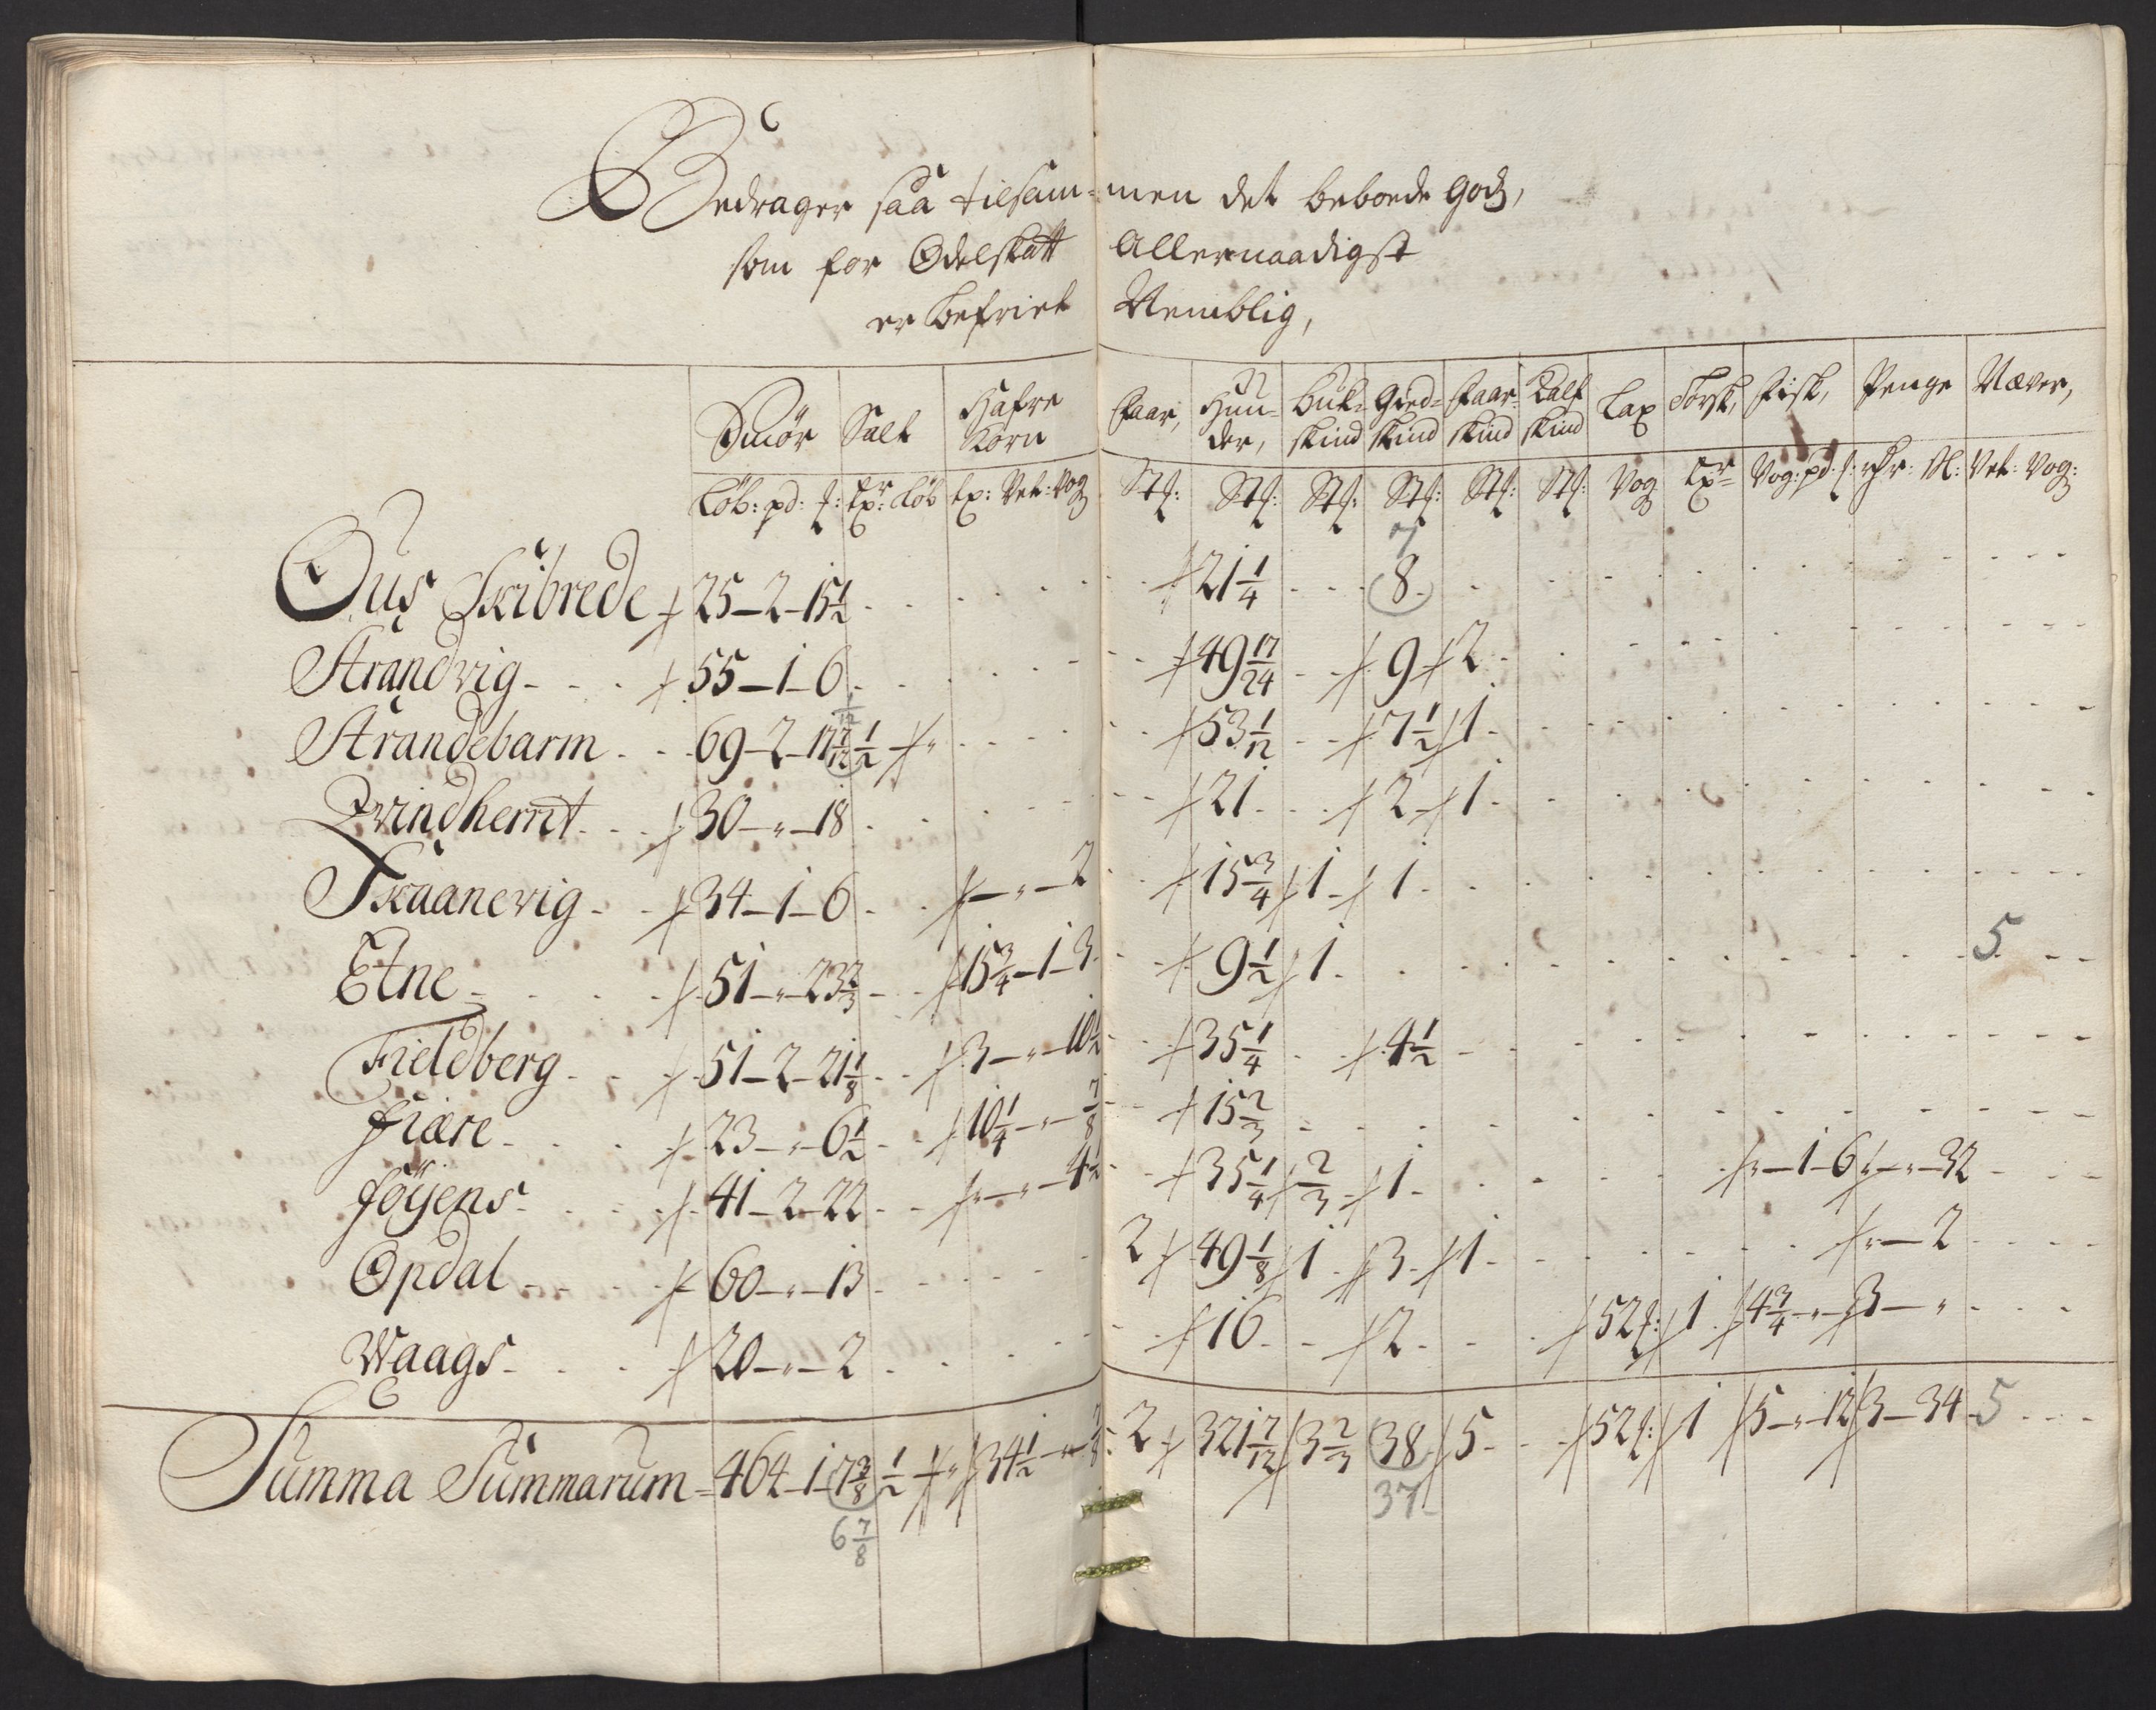 Bedrager saa tilsam-men det beboede Godz,
som for Odelskatt Allernaadigst
er befriet Nemblig,
Smör Salt Hafre Korn Faar, Huu-der, Buk-skind Gied-skind Faar-skind Kalf skind Lax Torsk, Fisk, Penge Næver,
Løb: pd: Tr: Løb tr: Vet: Vog Stk: Stk: Stk: Stk: Stk: Stk: Vog Tr Vog: pd: Vet: Vog:
7
Ous Skibrede 25-2-15 1/2 21 1/4 8
Strandvig 55-1-6 49 17/24 9 2
1/12
Strandebarm 69-2-17 7/12 1/2 - " 53 1/12 7 1/2 1
Qvindherrit 30-"-18 21 2 1
Skaanevig 34-1-6 -"-2 15 3/4 1 1
Etne 51-"-23 2/3 15 3/4-1-3 9 1/2 1 5
Fieldberg 51-2-21 1/8 3-"-10 1/2 35 1/4 4 1/2
Fiære 23-"-6 1/2 10 1/4-"-7/8 15 2/3
Föÿens 41-2-22 "-"-4 1/2 35 1/4 2/3 1 "-1-6 "-"-32
Opdal 60-"-13 2 49 1/8 1 3 1 "-2
Waags 20-"-2 16 2 52 1 4 3/4-"- 3-"
Summa Summarum 464-1-7 3/8 1/2 - " 34 1/2-"-7/8 2 321 7/12 3 2/3 38 5 52 1 5-"-12 3-34 5
6 7/8 37